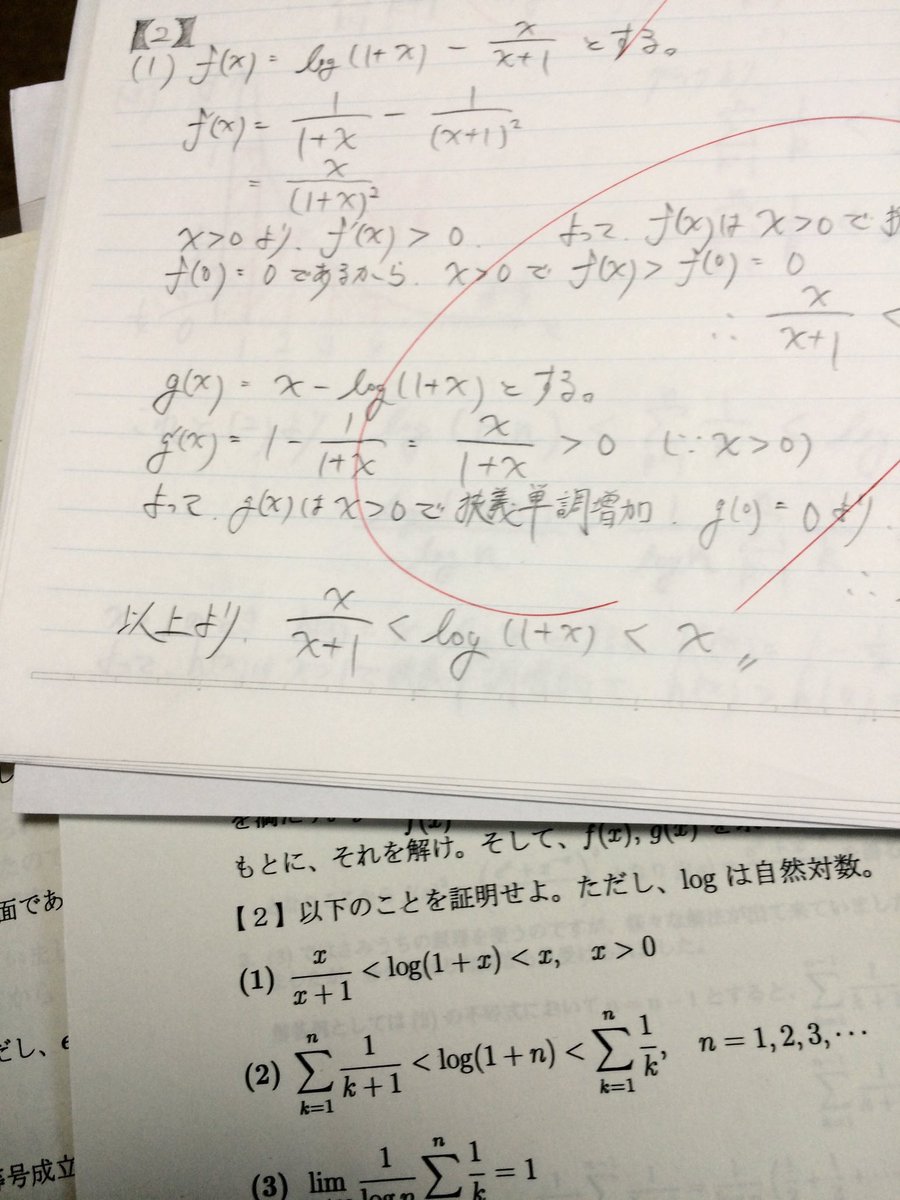 【2】
(1) f(x) = log(1+x) - x/(x+1) とする。
f'(x) = 1/(1+x) - 1/(x+1)²
= x/(1+x)²
x>0 より、f'(x) > 0. よって、f(x)は x>0 で
f(0) = 0 であるから、x>0 で f(x) > f(0) = 0
∴ x/(x+1) <
g(x) = x - log(1+x) とする。
g'(x) = 1 - 1/(1+x) = x/(1+x) > 0 (∵ x>0)
よって、g(x)は x>0 で 狭義単調増加、g(0) = 0 より、
∴
以上より、x/(x+1) < log(1+x) < x 〃
もとに、それを解け。そして、f(x), g(x) を
【2】以下のことを証明せよ。ただし、log は自然対数。
(1) x/(x+1) < log(1+x) < x, x > 0
(2) ∑_{k=1}^{n} 1/(k+1) < log(1+n) < ∑_{k=1}^{n} 1/k, n = 1, 2, 3, ⋯
(3) lim 1/log n ∑^{n} 1/k = 1
面であ
だし、e
等号成立